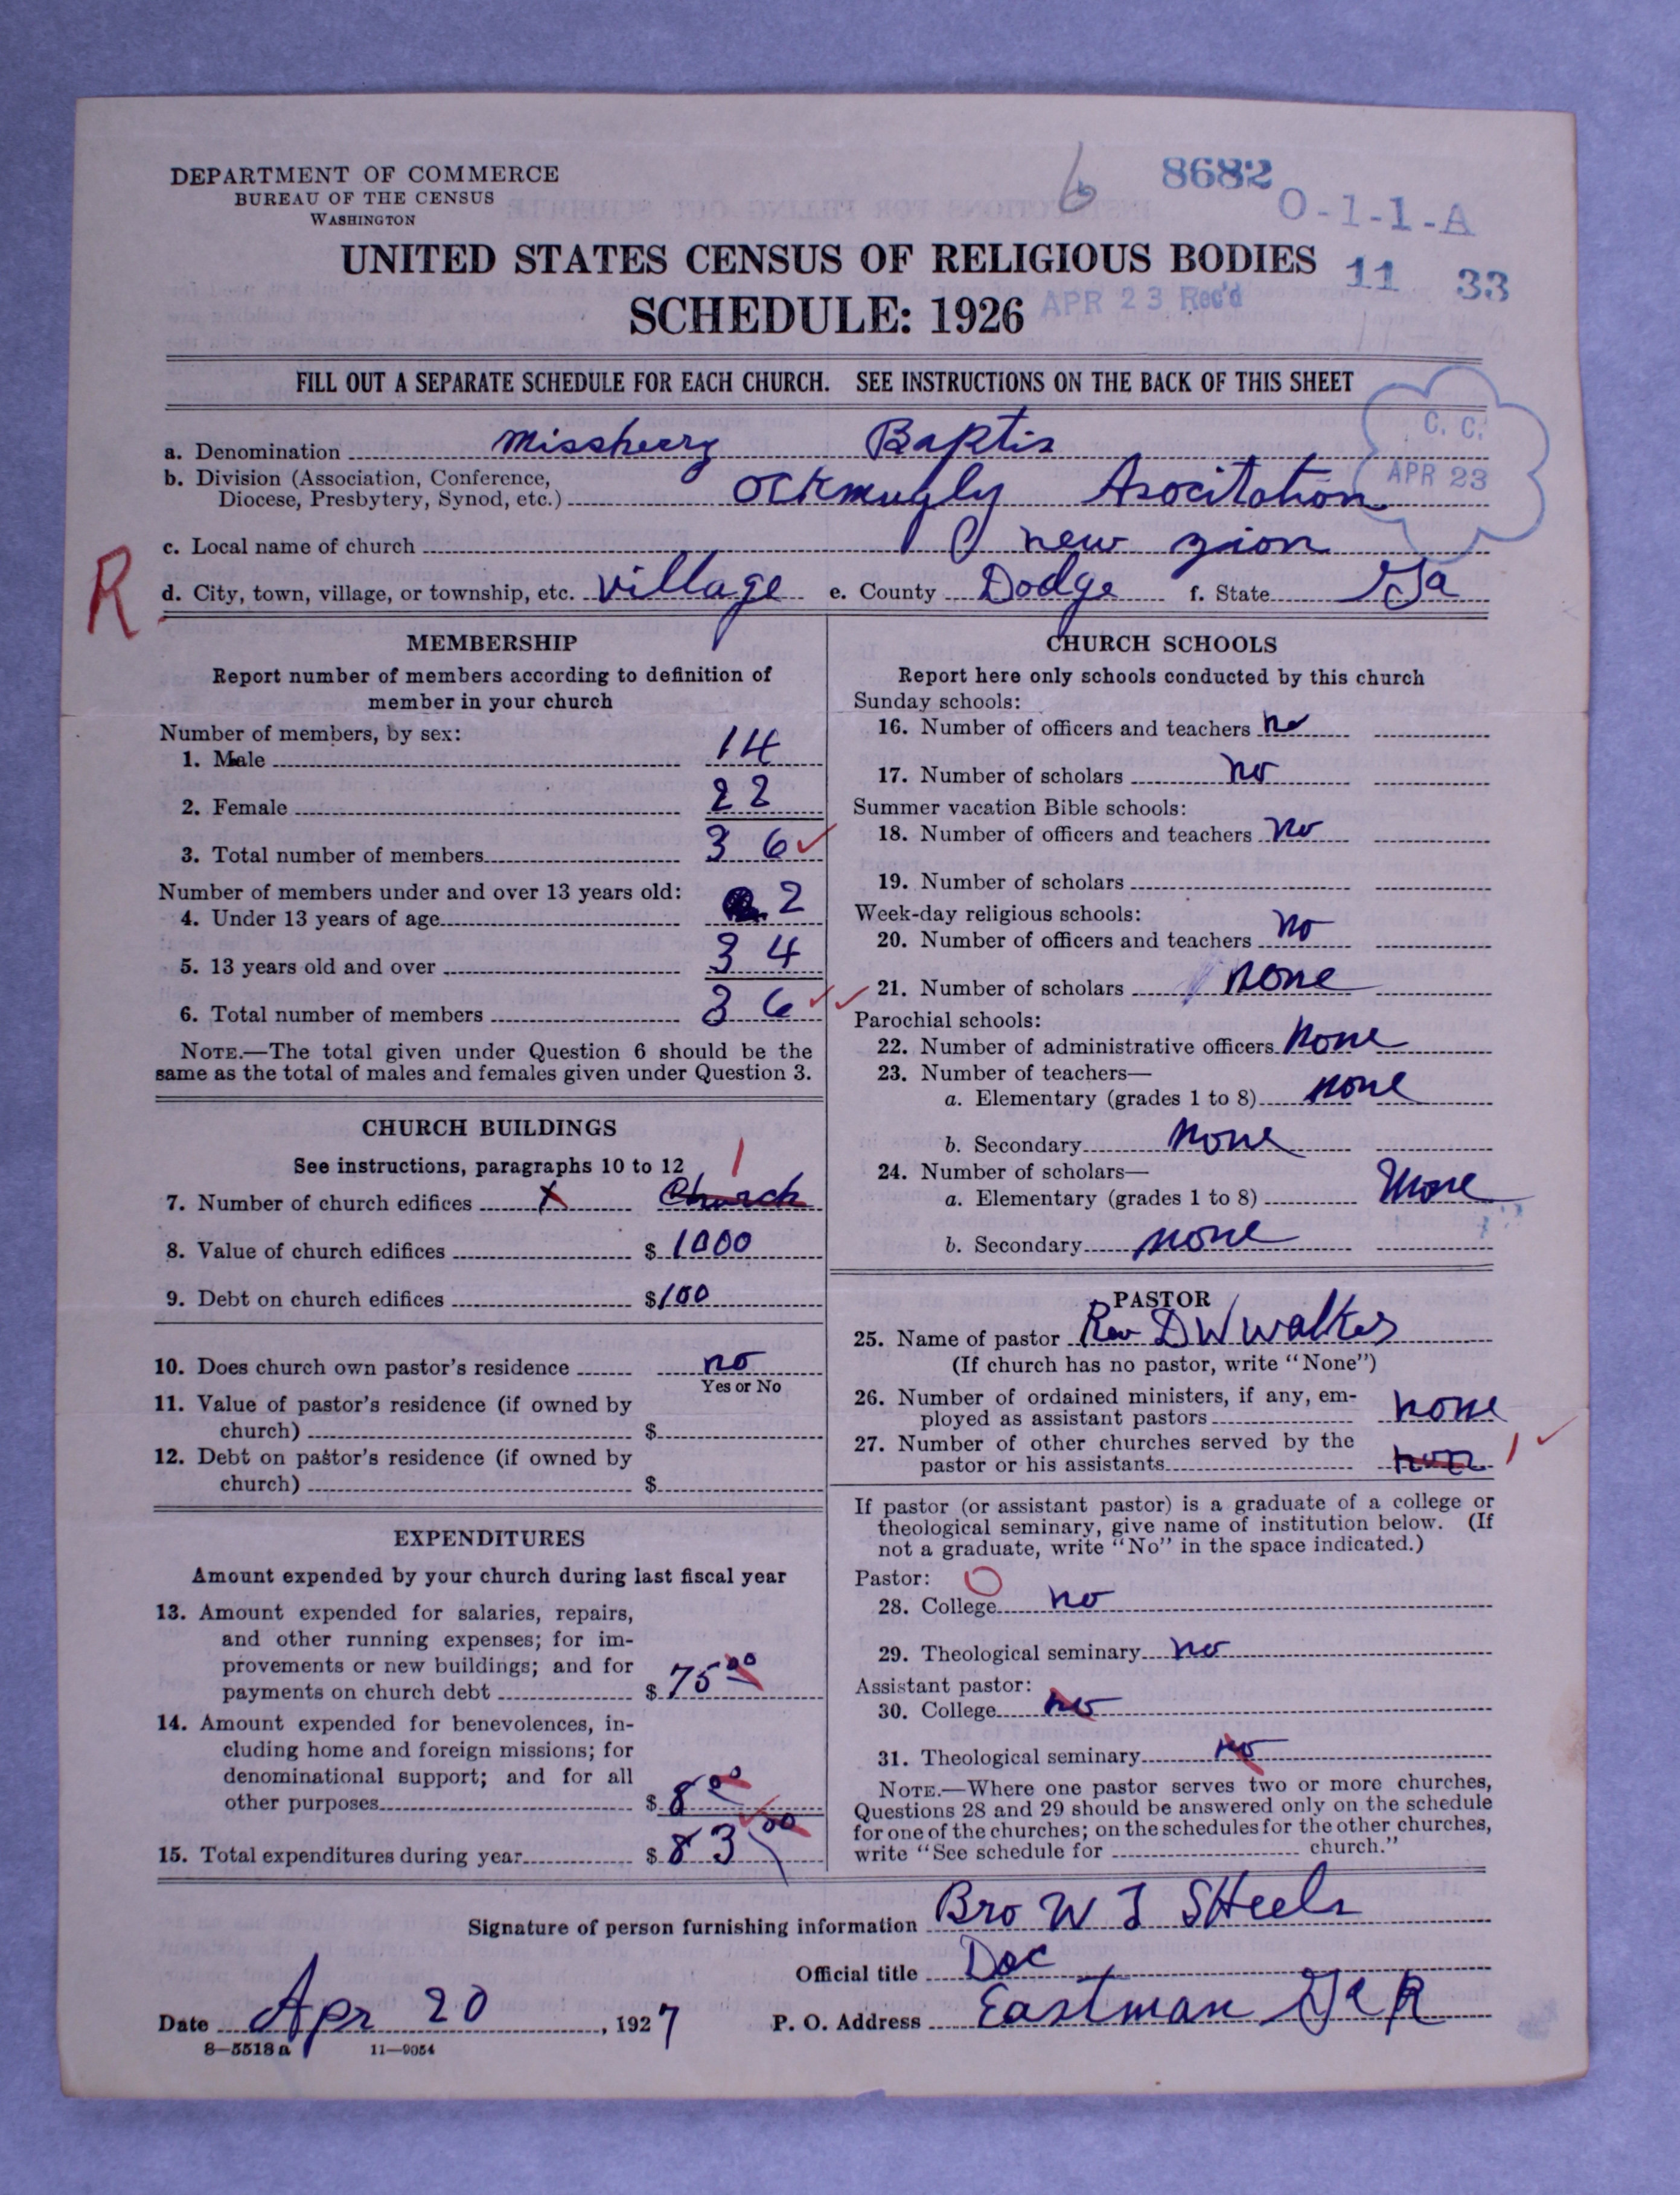 DEPARTMENT OF COMMERCE
BUREAU OF THE CENSUS
WASHINGTON
6
8682
O-1-1-A
UNITED STATES CENSUS OF RELIGIOUS BODIES
11 33
SCHEDULE: 1926
APR 23 Rec'd
FILL OUT A SEPARATE SCHEDULE FOR EACH CHURCH. SEE INSTRUCTIONS ON THE BACK OF THIS SHEET
C. C.
APR 23
a. Denomination Baptis
b. Division (Association, Conference,
Diocese, Presbytery, Synod, etc.) Ockmugly Asocitation
c. Local name of church new zion
R
d. City, town, village, or township, etc. village e. County Dodge f. State Ga
MEMBERSHIP
Report number of members according to definition of
member in your church
Number of members, by sex:
1. Male 14
2. Female 22
3. Total number of members 36
Number of members under and over 13 years old:
4. Under 13 years of age 2
5. 13 years old and over 34
6. Total number of members 36
NOTE.—The total given under Question 6 should be the
same as the total of males and females given under Question 3.
CHURCH BUILDINGS
See instructions, paragraphs 10 to 12
1
7. Number of church edifices Church
8. Value of church edifices $ 1000
9. Debt on church edifices $ 100
10. Does church own pastor's residence no
Yes or No
11. Value of pastor's residence (if owned by
church) $
12. Debt on pastor's residence (if owned by
church) $
EXPENDITURES
Amount expended by your church during last fiscal year
13. Amount expended for salaries, repairs,
and other running expenses; for im-
provements or new buildings; and for
payments on church debt $ 75 00
14. Amount expended for benevolences, in-
cluding home and foreign missions; for
denominational support; and for all
other purposes $ 8 00
15. Total expenditures during year $ 83 00
CHURCH SCHOOLS
Report here only schools conducted by this church
Sunday schools:
16. Number of officers and teachers no
17. Number of scholars no
Summer vacation Bible schools:
18. Number of officers and teachers no
19. Number of scholars
Week-day religious schools:
20. Number of officers and teachers no
21. Number of scholars none
Parochial schools:
22. Number of administrative officers none
23. Number of teachers—
a. Elementary (grades 1 to 8) none
b. Secondary none
24. Number of scholars—
a. Elementary (grades 1 to 8) none
b. Secondary none
PASTOR
25. Name of pastor Rev D W Walker
(If church has no pastor, write "None")
26. Number of ordained ministers, if any, em-
ployed as assistant pastors none
27. Number of other churches served by the
pastor or his assistants 1
If pastor (or assistant pastor) is a graduate of a college or
theological seminary, give name of institution below. (If
not a graduate, write "No" in the space indicated.)
Pastor: O
28. College no
29. Theological seminary no
Assistant pastor:
30. College no
31. Theological seminary no
NOTE.—Where one pastor serves two or more churches,
Questions 28 and 29 should be answered only on the schedule
for one of the churches; on the schedules for the other churches,
write "See schedule for church."
Signature of person furnishing information Bro W J
Official title
Date Apr 20, 1927 P. O. Address Eastman Ga R
8—5518a 11—9054